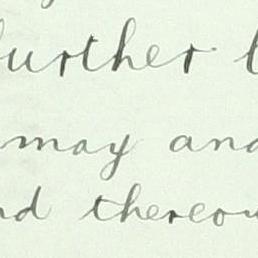 further
may and
nd thereou